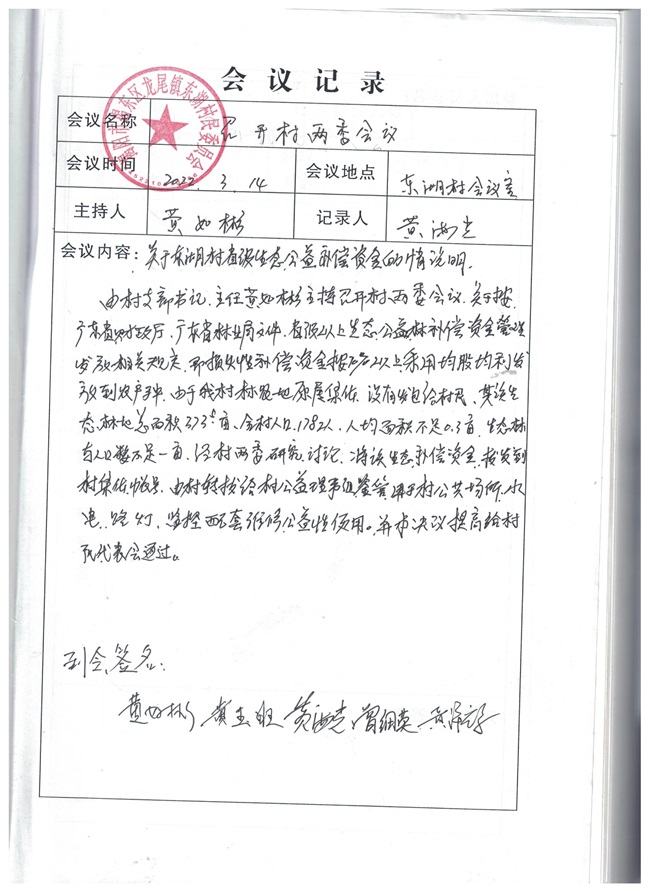 会议记录
揭阳市揭东区龙尾镇东湖村民委员会
会议名称 召开村两委会议
会议时间 2022.3.14 会议地点 东湖村会议室
主持人 黄如彬 记录人 黄海光
会议内容: 关于东湖村省级生态公益补偿资金的情况说明.
由村支部书记.主任黄如彬主持召开村两委会议.关于按
广东省财政厅.广东省林业局文件.省级以上生态公益林补偿资金管理
发放相关规定.即损失性补偿资金按 以上采用均股均利发
放到农户手.由于我村林地 属集体.没有发包给村民.其该生
态林地总面积373 亩.全村人口1782人.人均面积不足0.3亩.生态林
人口数不足一亩.经村两委研究讨论.将该生态补偿资金.按发到
村集体帐号.由村转拨给村公益理事组监管.用于村公共场所.水
电.路灯.监控配套维修公益性使用。并本决议提高给村
民代表会通过。
到会签名:
黄如彬 黄海光 曾细英